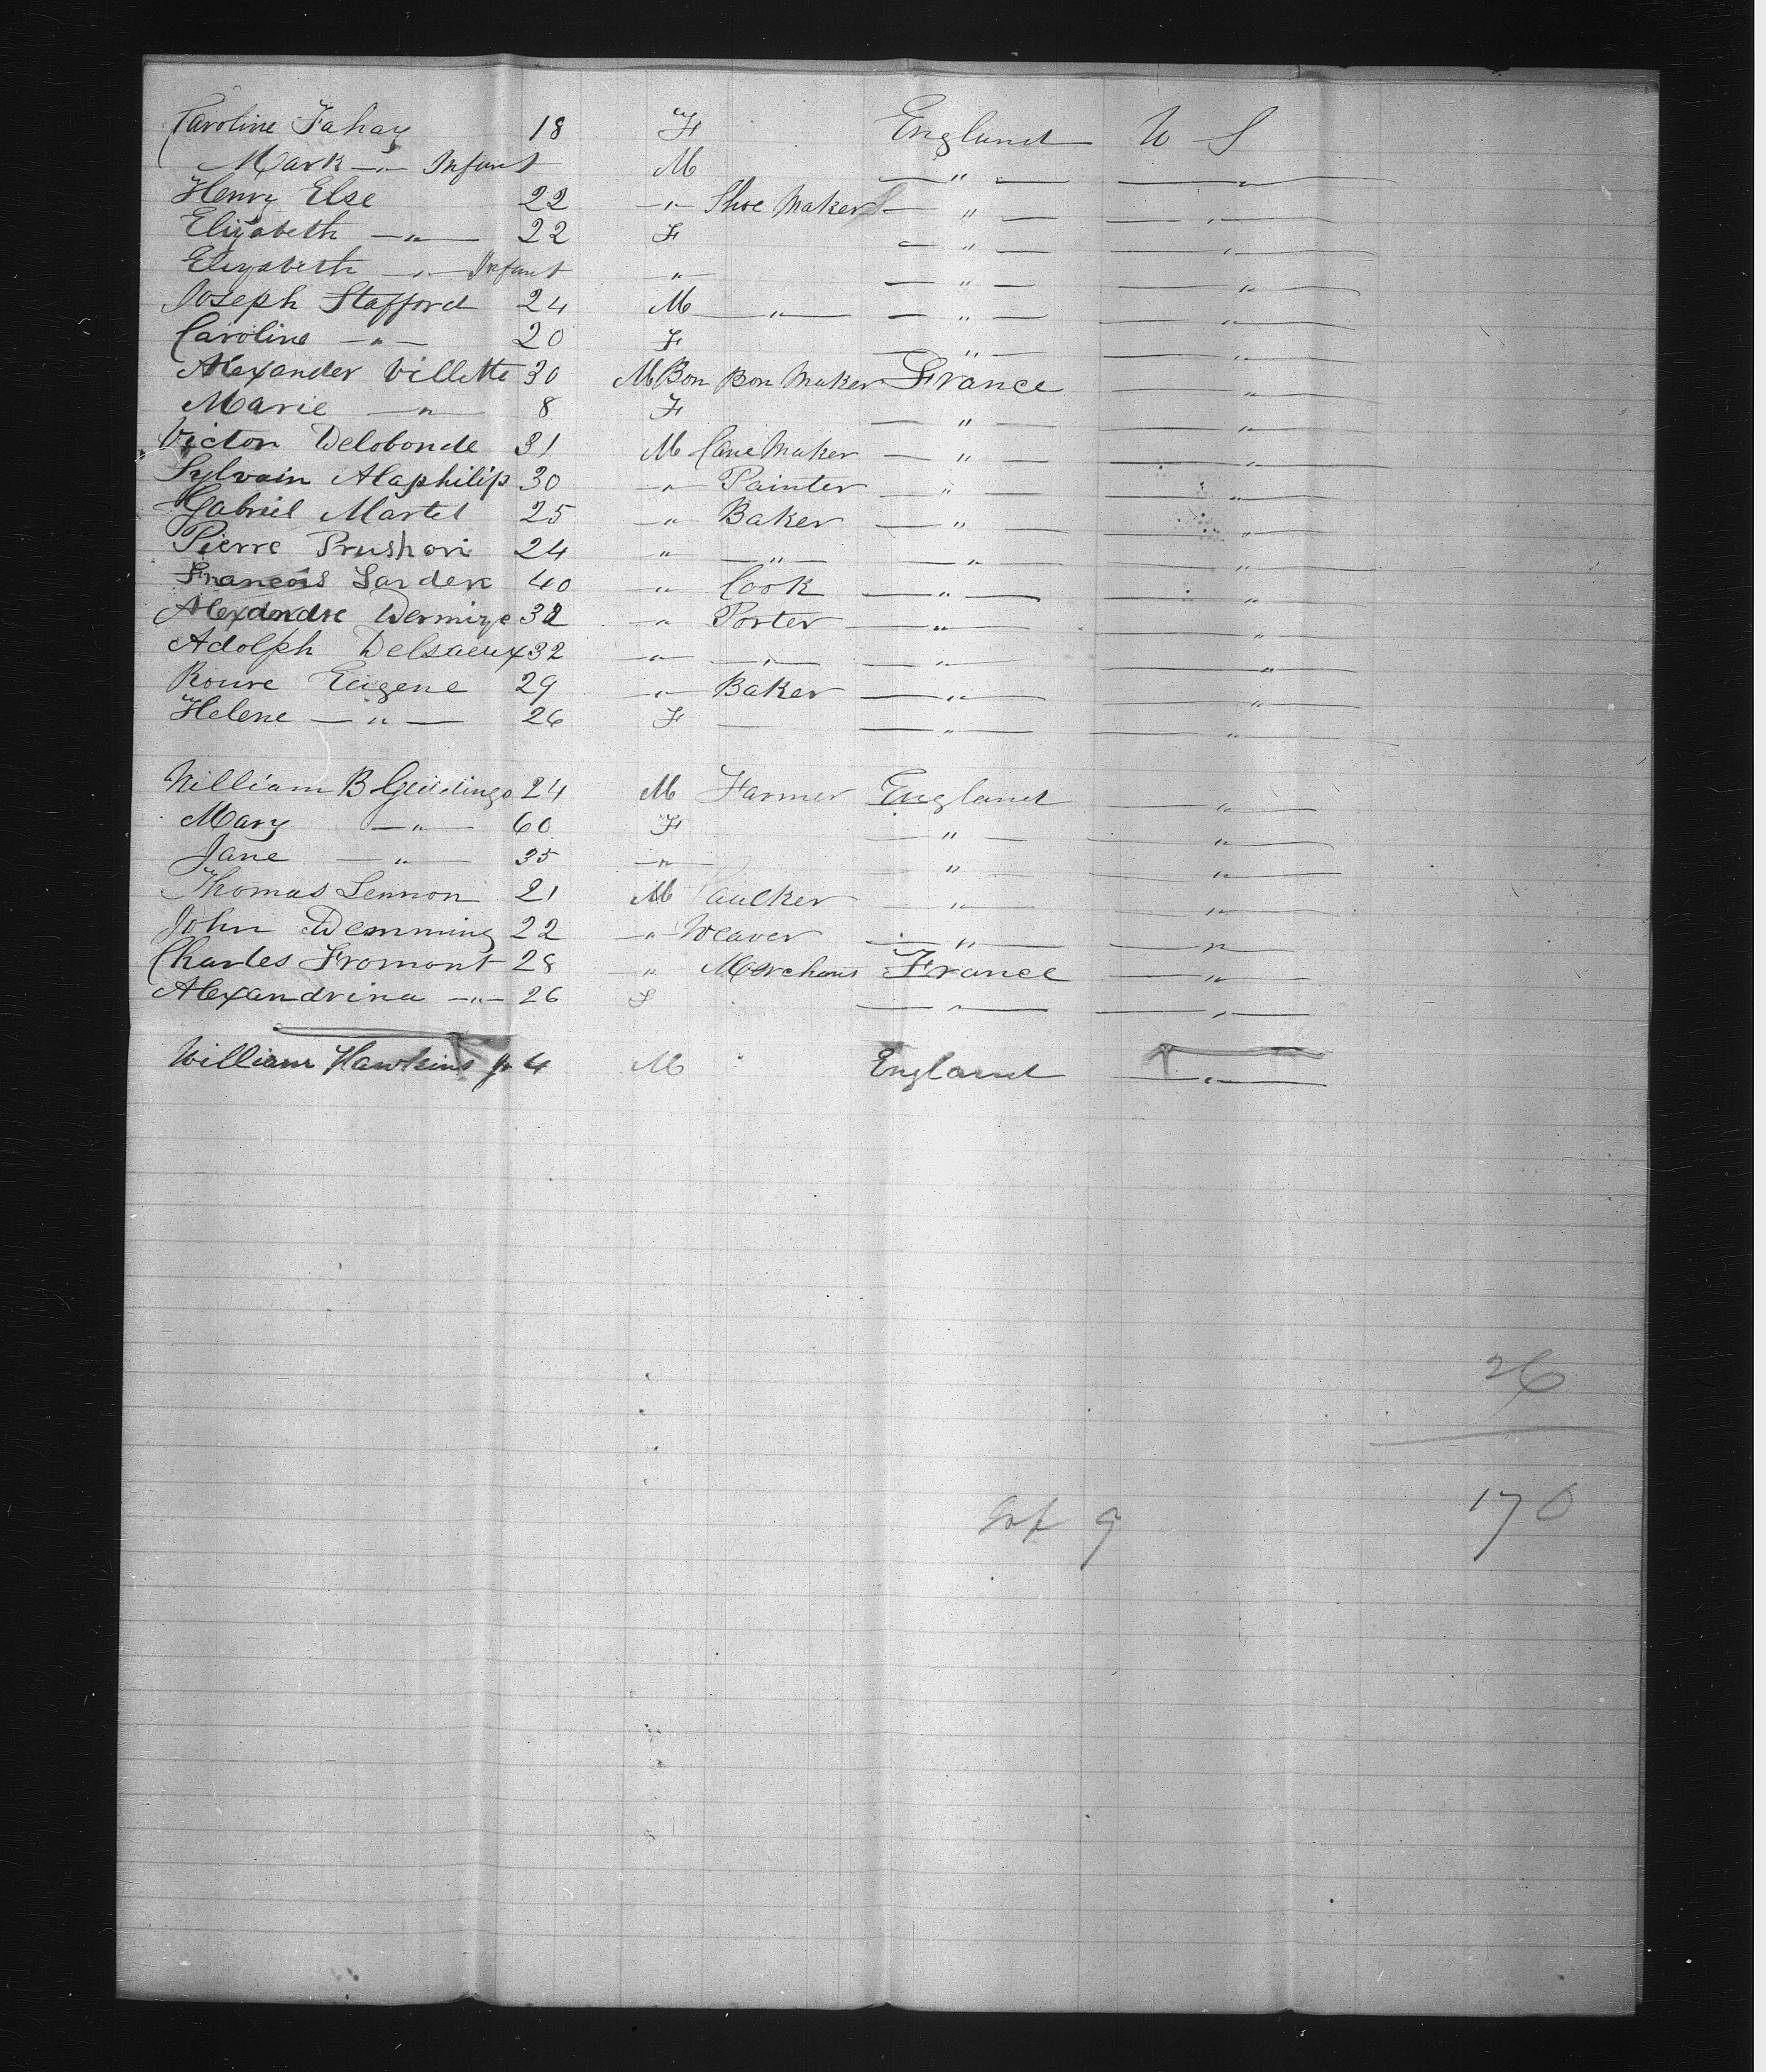 Caroline Fahay 18 F England U S
Mark —"— Infant M —"— —"—
Henry Else 22 —"— Shoe Maker —"— —"—
Elizabeth —"— 22 F —"— —"—
Elizabeth —"— Infant —"— —"— —"—
Joseph Stafford 24 M —"— —"— —"—
Caroline —"— 20 F —"— —"—
Alexander Villette 30 M Bon Bon Maker France —"—
Marie —"— 8 F —"— —"—
Victor Delobonde 31 M Cane Maker —"— —"—
Sylvain Alaphilip 30 —"— Painter —"— —"—
Gabriel Martel 25 —"— Baker —"— —"—
Pierre Prushori 24 " —"— —"— —"—
Francois Sardere 40 —"— Cook —"— —"—
Alexandre 32 —"— Porter —"— —"—
Adolph Delsaeux 32 —"— —"— —"— —"—
Roure Eugene 29 —"— Baker —"— —"—
Helene —"— 26 F — —"— —"—
William B Giddings 24 M Farmer England —"—
Mary —"— 60 F —"— —"—
Jane —"— 35 —"— " —"—
Thomas Lennon 21 M Caulker —"— —"—
John Demming 22 —"— Weaver —"— —"—
Charles Fromont 28 " Merchant France —"—
Alexandrina —"— 26 F —"— —"—
William Hawkins Jr 4 M England —"—
26
Inf 9 170